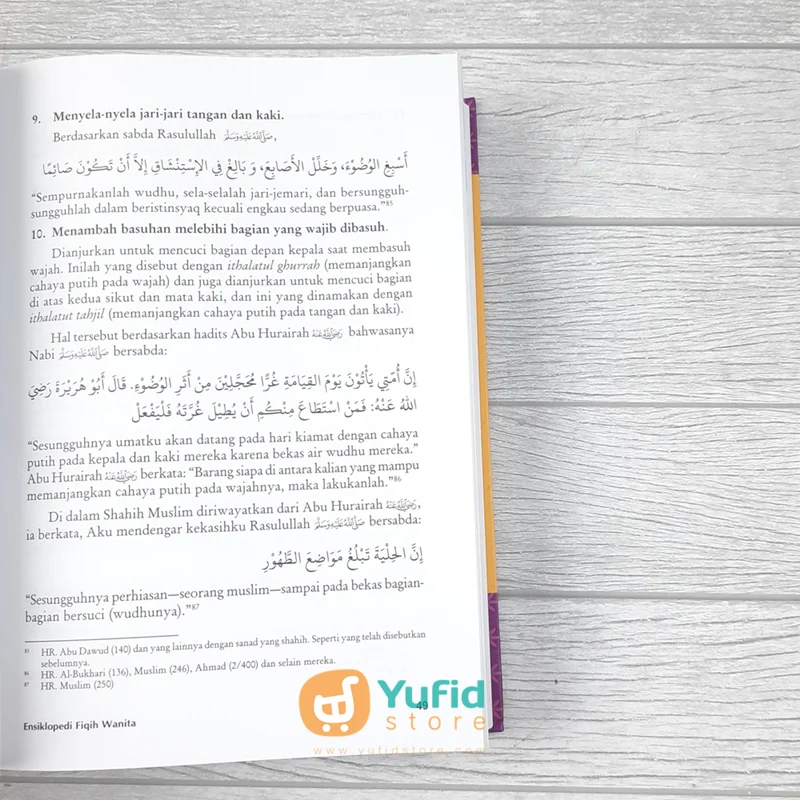 9. Menyela-nyela jari-jari tangan dan kaki.
Berdasarkan sabda Rasulullah ﷺ,
أَسْبِغِ الوُضُوْءَ، وَخَلِّلْ الأَصَابِعَ، وَ بَالِغْ فِي الإِسْتِنْشَاقِ إِلاَّ أَنْ تَكُوْنَ صَائِمًا
“Sempurnakanlah wudhu, sela-selalah jari-jemari, dan bersungguh-
sungguhlah dalam beristinsyaq kecuali engkau sedang berpuasa.”85
10. Menambah basuhan melebihi bagian yang wajib dibasuh.
Dianjurkan untuk mencuci bagian depan kepala saat membasuh
wajah. Inilah yang disebut dengan ithalatul ghurrah (memanjangkan
cahaya putih pada wajah) dan juga dianjurkan untuk mencuci bagian
di atas kedua sikut dan mata kaki, dan ini yang dinamakan dengan
ithalatut tahjil (memanjangkan cahaya putih pada tangan dan kaki).
Hal tersebut berdasarkan hadits Abu Hurairah رَضِيَ اللهُ عَنْهُ bahwasanya
Nabi ﷺ bersabda:
إِنَّ أُمَّتِي يَأْتُوْنَ يَوْمَ القِيَامَةِ غُرًّا مُحَجَّلِيْنَ مِنْ أَثَرِ الوُضُوْءِ. قَالَ أَبُوْ هُرَيْرَةَ رَضِيَ
اللهُ عَنْهُ: فَمَنْ اسْتَطَاعَ مِنْكُمِ أَنْ يُطِيْلَ غُرَّتَهُ فَلْيَفْعَلْ
“Sesungguhnya umatku akan datang pada hari kiamat dengan cahaya
putih pada kepala dan kaki mereka karena bekas air wudhu mereka.”
Abu Hurairah رَضِيَ اللهُ عَنْهُ berkata: “Barang siapa di antara kalian yang mampu
memanjangkan cahaya putih pada wajahnya, maka lakukanlah.”86
Di dalam Shahih Muslim diriwayatkan dari Abu Hurairah رَضِيَ اللهُ عَنْهُ,
ia berkata, Aku mendengar kekasihku Rasulullah ﷺ bersabda:
إِنَّ الحِلْيَةَ تَبْلُغُ مَوَاضِعَ الطَّهُوْرِ
“Sesungguhnya perhiasan—seorang muslim—sampai pada bekas bagian-
bagian bersuci (wudhunya).”87
85 HR. Abu Dawud (140) dan yang lainnya dengan sanad yang shahih. Seperti yang telah disebutkan
sebelumnya.
86 HR. Al-Bukhari (136), Muslim (246), Ahmad (2/400) dan selain mereka.
87 HR. Muslim (250)
Ensiklopedi Fiqih Wanita
49
Yufid
store
www.yufidstore.com